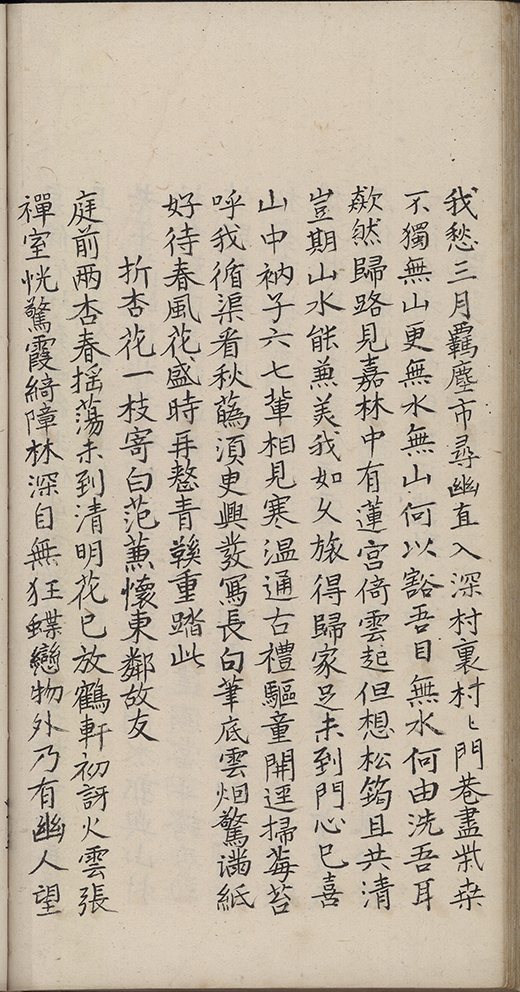 我愁三月羈塵市尋幽直入深村裏村〻門巷盡柴桑
不獨無山更無水無山何以豁吾目無水何由洗吾耳
歘然歸路見嘉林中有蓮宮倚雲起但想松筠且共清
豈期山水能兼美我如久旅得歸家足未到門心已喜
山中衲子六七輩相見寒溫通古禮驅童開逕掃莓苔
呼我循渠看秋蕅須更興發寫長句筆底雲烟驚滿紙
好待春風花盛時再整青鞵重踏此
折杏花一枝寄白范兼懷東鄰故友
庭前兩杏春揺蕩未到清明花已放鶴軒初訝火雲張
禪室恍驚霞綺障林深自無狂蝶戀物外乃有幽人望